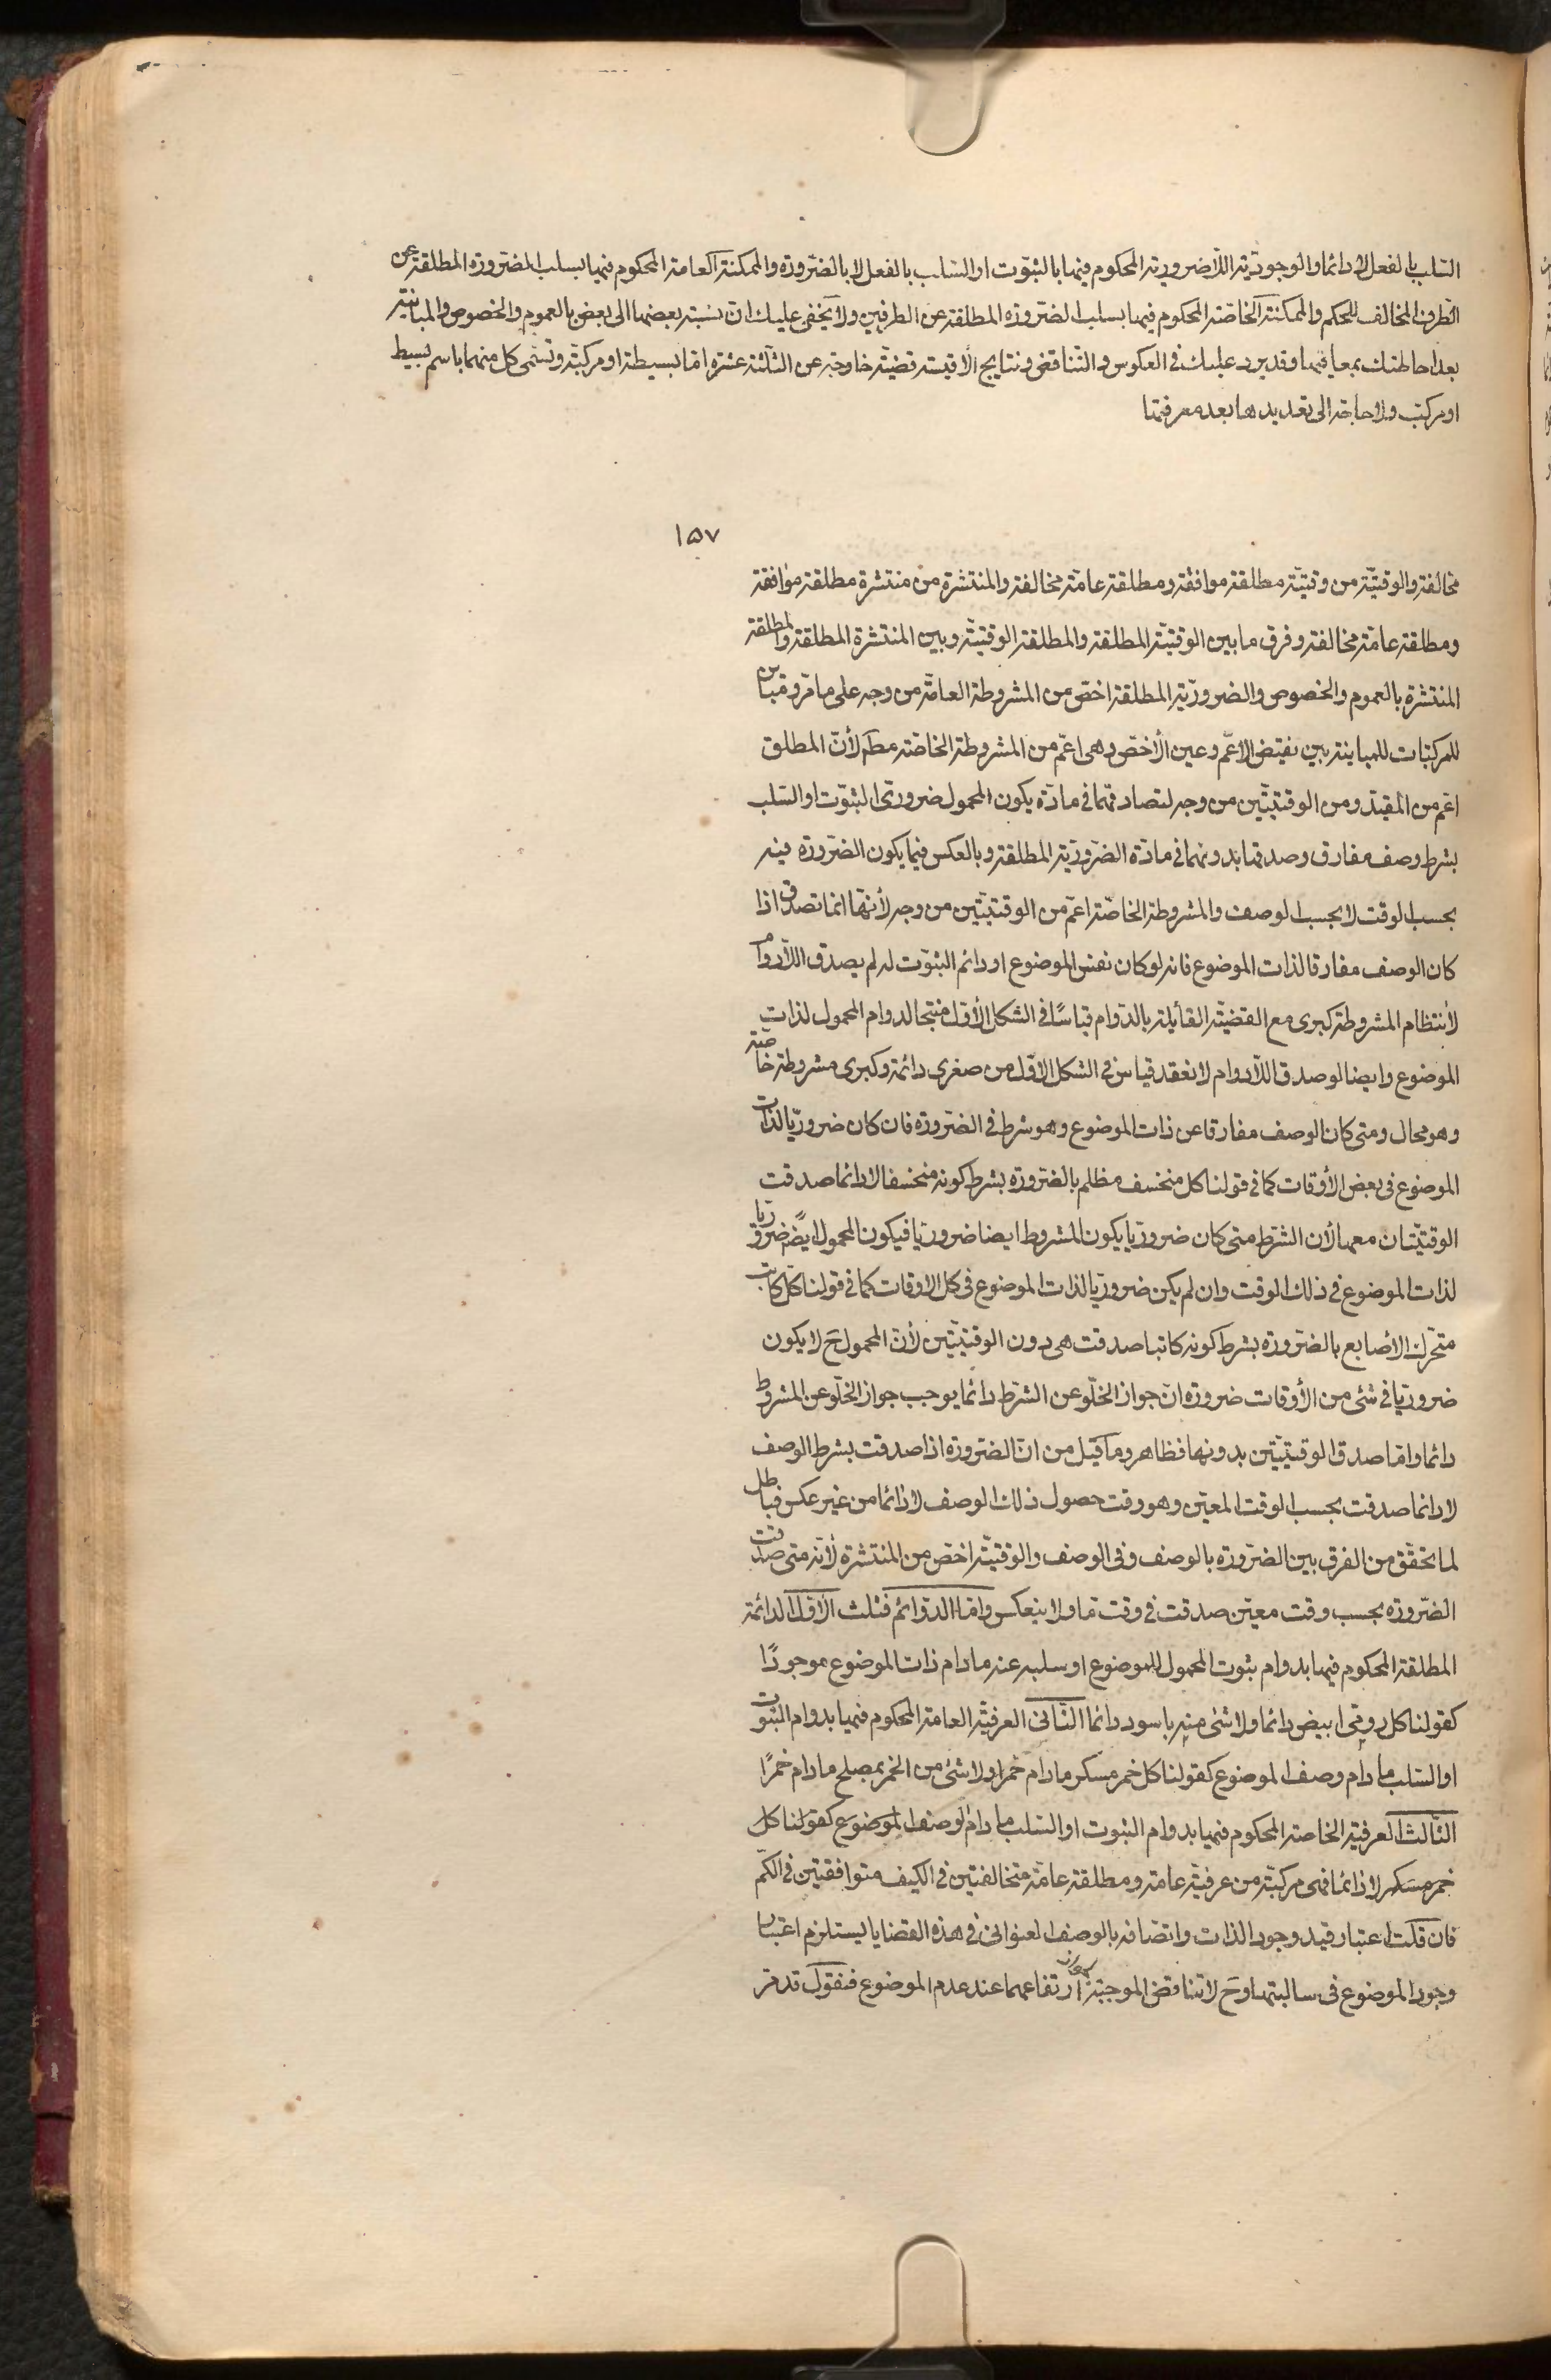 السّلب بالفعل لا دائما والوجوديّة اللّاضروريّة المحكوم فيها بالثبوت او السّلب بالفعل لا بالضّرورة والممكنة العامة المحكوم فيها بسلب الضّرورة المطلقة عن
الطّرف المخالف للحكم والممكنة الخاصّة المحكوم فيها بسلب الضّرورة المطلقة عن الطرفين ولا يخفى عليك انّ نسبة بعضها الى بعض بالعموم والخصوص والمباينة
بعد احاطتك بمعانيها وقد يرد عليك في العكوس والتّناقض ونتايج الأقيسة قضيّة خارجة عن الثّلثة عشرة امّا بسيطة او مركبّة وتسمّى كل منهما باسم بسيط
او مركبّ ولا حاجة الى تعديدها بعد معرفتها
١٥٧
مخالفة والوقتيّة من وقتيّة مطلقة موافقة ومطلقة عامّة مخالفة والمنتشرة من منتشرة مطلقة موافقة
ومطلقة عامّة مخالفة وفرق ما بين الوقتيّة المطلقة والمطلقة الوقتيّة وبين المنتشرة المطلقة والمطلقة
المنتشرة بالعموم والخصوص والضروريّة المطلقة اخصّ من المشروطة العامّة من وجه على ما مرّ ومباين
للمركبّات للمباينة بين نقيض الاعّم وعين الأخصّ وهى اعّم من المشروطة الخاصّة مطم لأنّ المطلق
اعّم من المقيّد ومن الوقتيّتين من وجه لتصادقهما في مادّة يكون المحمول ضرورىّ الثبوت او السّلب
بشرط وصف مفارق وصدقها بدونهما في مادّة الضّروريّة المطلقة وبالعكس فيما يكون الضّرورة فيه
بحسب الوقت لا بحسب الوصف والمشروطة الخاصّة اعّم من الوقتيّتين من وجه لأنّها انما تصدق اذا
كان الوصف مفارقا لذات الموضوع فانه لو كان نفس الموضوع او دائم الثبوت له لم يصدق اللّادوام
لأنتظام المشروطة كبرى مع القضيّة القأيلة بالدّوام قياسًا في الشكل الأوّل منتجا لدوام المحمول لذات
الموضوع وايضا لو صدق اللّادوام لانعقد قياس في الشكل الاوّل من صغرى دائمة وكبرى مشروطة خاصّة
وهو محال ومتى كان الوصف مفارقا عن ذات الموضوع وهو شرط في الضّرورة فان كان ضروريّا لذات
الموضوع في بعض الأوقات كما في قولنا كل منخسف مظلم بالضّرورة بشرط كونه منخسفا لا دائما صدقت
الوقتيّتان معها لأن الشرّط متى كان ضروريّا يكون المشروط ايضا ضروريّا فيكون المحمول ايضً ضروريّا
لذات الموضوع في ذلك الوقت وان لم يكن ضروريّا لذات الموضوع في كل الاوقات كما في قولنا كلّ كاتب
متحرّك الأصابع بالضّرورة بشرط كونه كاتبا صدقت هى دون الوقتيّتين لأنّ المحمول ح لا يكون
ضروريّا في شئ من الأوقات ضرورة انّ جواز الخلّو عن الشرّط دائما يوجب جواز الخلّو عن المشروط
دائما وامّا صدق الوقتيّتين بدونها فظاهر وما قيل من انّ الضّرورة اذا صدقت بشرط الوصف
لا دائما صدقت بحسب الوقت المعيّن وهو وقت حصول ذلك الوصف لا دائما من غير عكس فباطل
لما تحقّق من الفرق بين الضّرورة بالوصف وفي الوصف والوقتيّة اخصّ من المنتشرة لأنّه متى صدقت
الضّرورة بحسب وقت معيّن صدقت في وقت مّا ولا ينعكس وامّا الدّوائم فثلث الأوّل الدائمة
المطلقة المحكوم فيها بدوام ثبوت المحمول للموضوع او سلبه عنه ما دام ذات الموضوع موجودًا
كقولنا كل رومىّ ابيض دائما ولا شئ منه باسود دائما الثّانى العرفيّة العامة المحكوم فيها بدوام الثبوت
او السّلب ما دام وصف الموضوع كقولنا كل خمر مسكر ما دام خمرا ولا شئ من الخمر بمصلح ما دام خمرًا
الثّالث العرفيّة الخاصة المحكوم فيها بدوام الثبوت او السّلب ما دام الوصف الموضوع كقولنا كل
خمر مسكر لا دائما فهى مركبّة من عرفيّة عامة ومطلقة عامّة متخالفتين في الكيف متوافقتين في الكّم
فان قلت اعتبار قيد وجود الذات واتّصافه بالوصف العنوانى في هذه القضايا يستلزم اعتبار
وجود الموضوع في سالبتها وح لا تناقض الموجبة لجواز ارتفاعهما عند عدم الموضوع فنقول قد مرّ